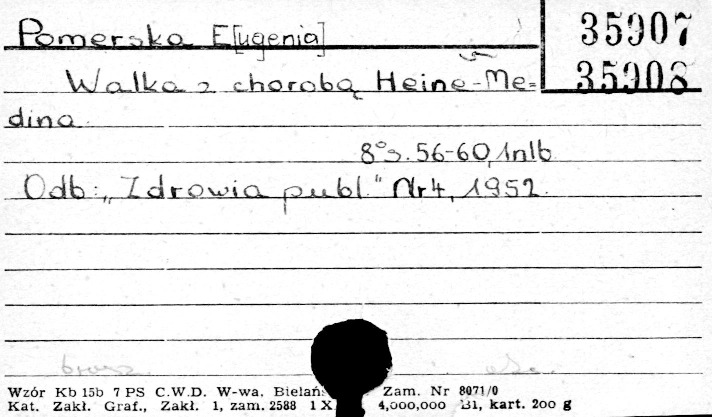 Pomerska E[ugenia]
35907
35908
Walka z chorobą Heine-Me=
dina
8° s. 56-60, 1 nlb
Odb.: „Zdrowia publ." Nr 4, 1952.
brosz.
Wzór Kb 15b 7 PS C.W.D. W-wa, Bielańs Zam. Nr 8071/0
Kat. Zakł. Graf., Zakł. 1, zam. 2588 1 X 4,000,000 B1, kart. 200 g